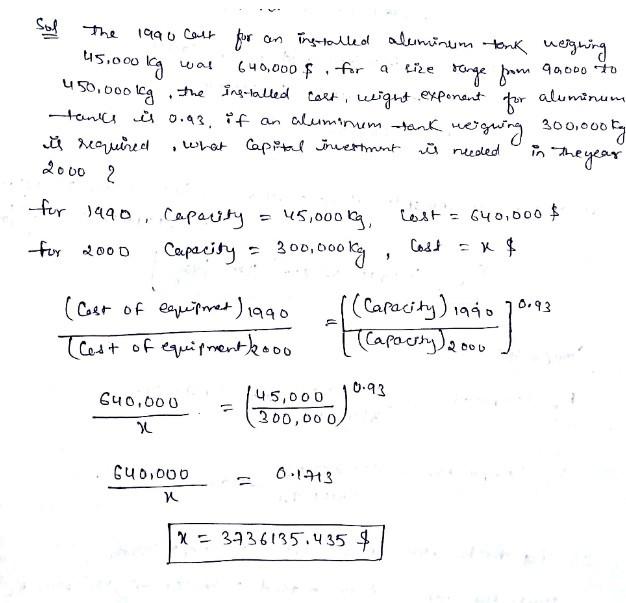 Sol The 1990 Cost for an installed aluminum tank weighing
45,000 kg was 640,000 $, for a size range from 90,000 to
450,000 kg, the installed cost, weight exponent for aluminum
tanks is 0.93, if an aluminum tank weighing 300,000 kg
is required, what Capital investment is needed in the year
2000 ?
for 1990, Capacity = 45,000 kg, Cost = 640,000 $
for 2000 Capacity = 300,000 kg, Cost = x $
(Cost of equipmet) 1990 / (Cost of equipment) 2000 = [(Capacity) 1990 / (Capacity) 2000]^0.93
640,000 / x = (45,000 / 300,000)^0.93
640,000 / x = 0.1713
x = 3736135.435 $